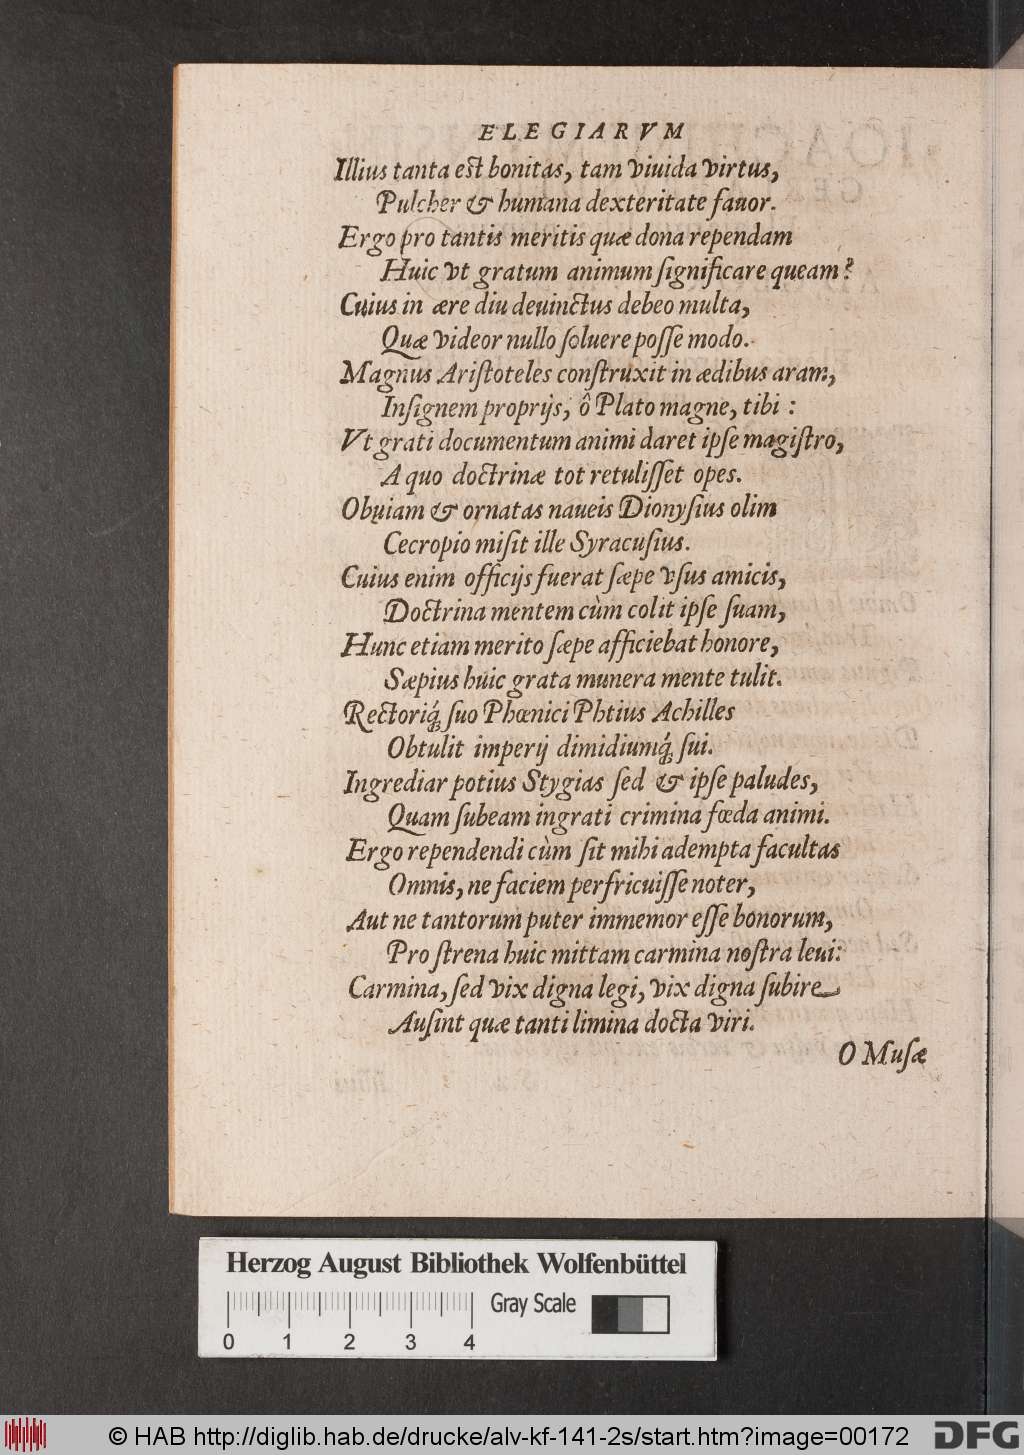 ELEGIARVM
Illius tanta est bonitas, tam viuida virtus,
Pulcher & humana dexteritate fauor.
Ergo pro tantis meritis quæ dona rependam
Huic vt gratum animum ſignificare queam?
Cuius in ære diu deuinctus debeo multa,
Quæ videor nullo ſoluere poſſe modo.
Magnus Ariſtoteles conſtruxit in ædibus aram,
Inſignem proprijs, ô Plato magne, tibi:
Vt grati documentum animi daret ipſe magiſtro,
A quo doctrinæ tot retuliſſet opes.
Obuiam & ornatas naueis Dionyſius olim
Cecropio miſit ille Syracuſius.
Cuius enim officijs fuerat ſæpe vſus amicis,
Doctrina mentem cùm colit ipſe ſuam,
Hunc etiam merito ſæpe afficiebat honore,
Sæpius huic grata munera mente tulit.
Rectoriq́; ſuo Phœnici Phtius Achilles
Obtulit imperij dimidiumq́; ſui.
Ingrediar potius Stygias ſed & ipſe paludes,
Quam ſubeam ingrati crimina fœda animi.
Ergo rependendi cùm ſit mihi adempta facultas
Omnis, ne faciem perfricuiſſe noter,
Aut ne tantorum puter immemor eſſe bonorum,
Pro ſtrena huic mittam carmina noſtra leui:
Carmina, ſed vix digna legi, vix digna ſubire
Auſint quæ tanti limina docta viri.
O Muſæ
Herzog August Bibliothek Wolfenbüttel
Gray Scale
0 1 2 3 4
© HAB http://diglib.hab.de/drucke/alv-kf-141-2s/start.htm?image=00172
DFG